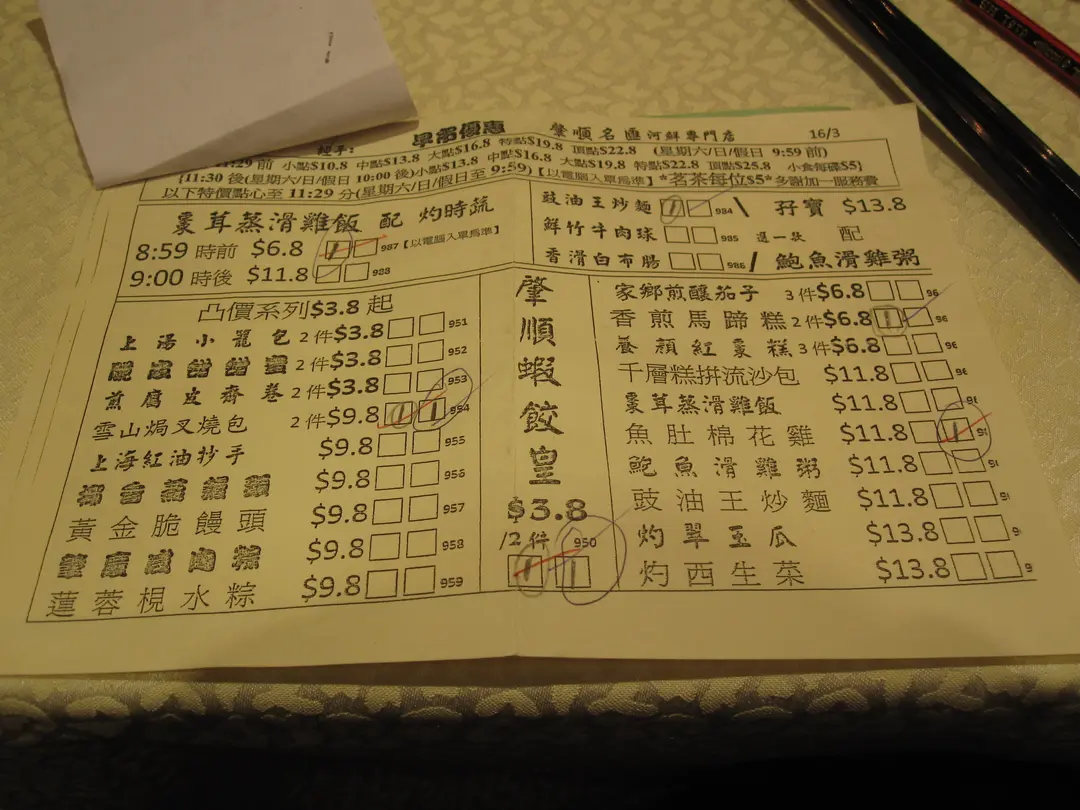 經手:
早部優惠 肇順名匯河鮮專門店 16/3
11:29 前 小點$10.8 中點$13.8 大點$16.8 特點$19.8 頂點$22.8 (星期六/日/假日 9:59 前)
{11:30 後(星期六/日/假日 10:00 後)小點$13.8 中點$16.8 大點$19.8 特點$22.8 頂點$25.8 小食每碟$5}
以下特價點心至 11:29 分(星期六/日/假日至 9:59)【以電腦入單爲準】*茗茶每位$5*多謝加一服務費
棗茸蒸滑雞飯 配 灼時蔬
8:59 時前 $6.8 1 987【以電腦入單爲準】
9:00 時後 $11.8 988
豉油王炒麵 1 984 \ 孖寶 $13.8
鮮竹牛肉球 985 選一款 配
香滑白布腸 986 / 鮑魚滑雞粥
凸價系列$3.8 起
上湯小籠包 2 件$3.8 951
2 件$3.8 952
煎腐皮齋卷 2 件$3.8 953
雪山焗叉燒包 2 件$9.8 1 1 954
上海紅油抄手 $9.8 955
$9.8 956
黃金脆饅頭 $9.8 957
$9.8 958
蓮蓉梘水粽 $9.8 959
肇順蝦餃皇
$3.8
/2 件 950
1 1
家鄉煎釀茄子 3 件$6.8 96
香煎馬蹄糕 2 件$6.8 1 96
養顏紅棗糕 3 件$6.8 96
千層糕拼流沙包 $11.8 96
棗茸蒸滑雞飯 $11.8
魚肚棉花雞 $11.8 1
鮑魚滑雞粥 $11.8
豉油王炒麵 $11.8
灼翠玉瓜 $13.8
灼西生菜 $13.8